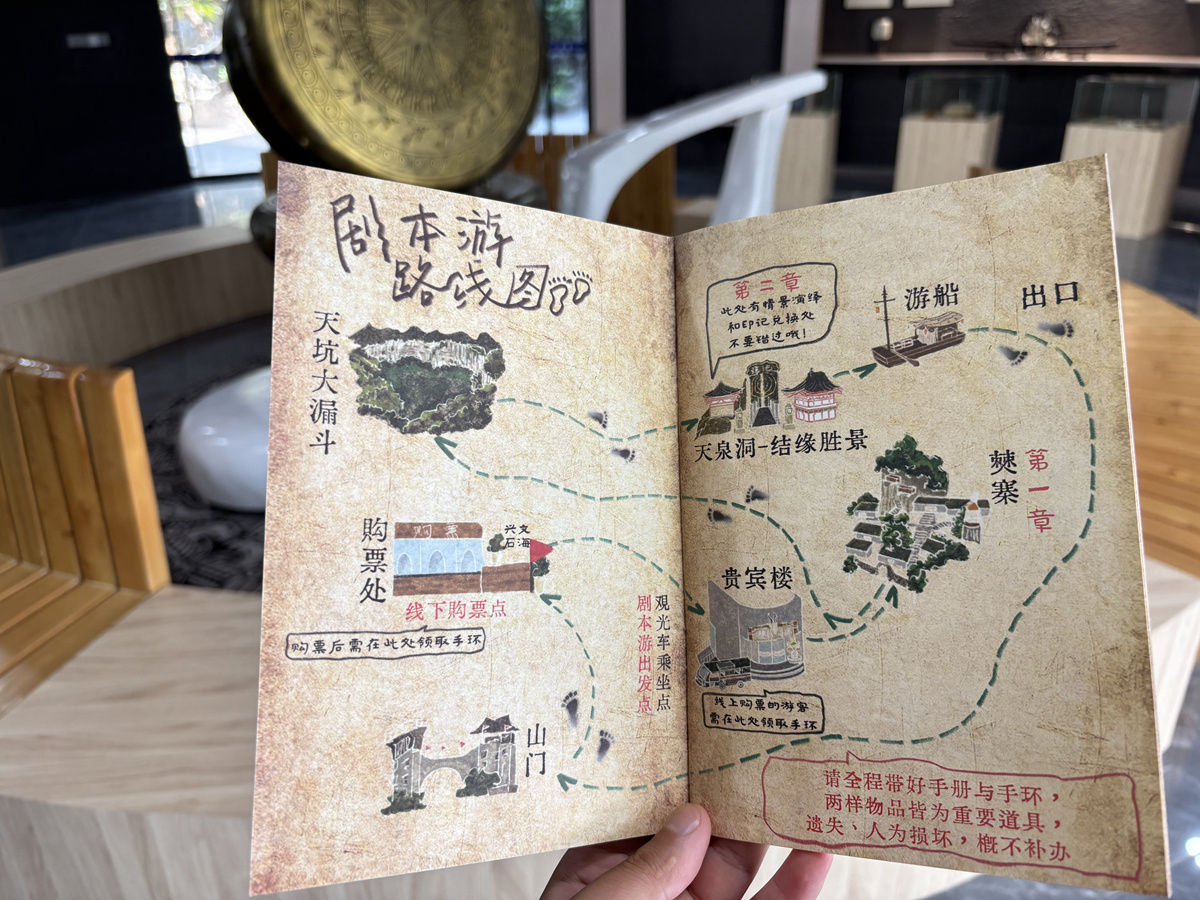 剧本游
路线图
天坑大漏斗
购票处
购票
兴文
石海
线下购票点
购票后需在此处领取手环
山门
观光车乘坐点
剧本游出发点
第二章
此处有情景演绎
和印记兑换处
不要错过哦！
游船
出口
天泉洞-结缘胜景
第一章
僰寨
贵宾楼
线上购票的游客
需在此处领取手环
请全程带好手册与手环，
两样物品皆为重要道具，
遗失、人为损坏，概不补办